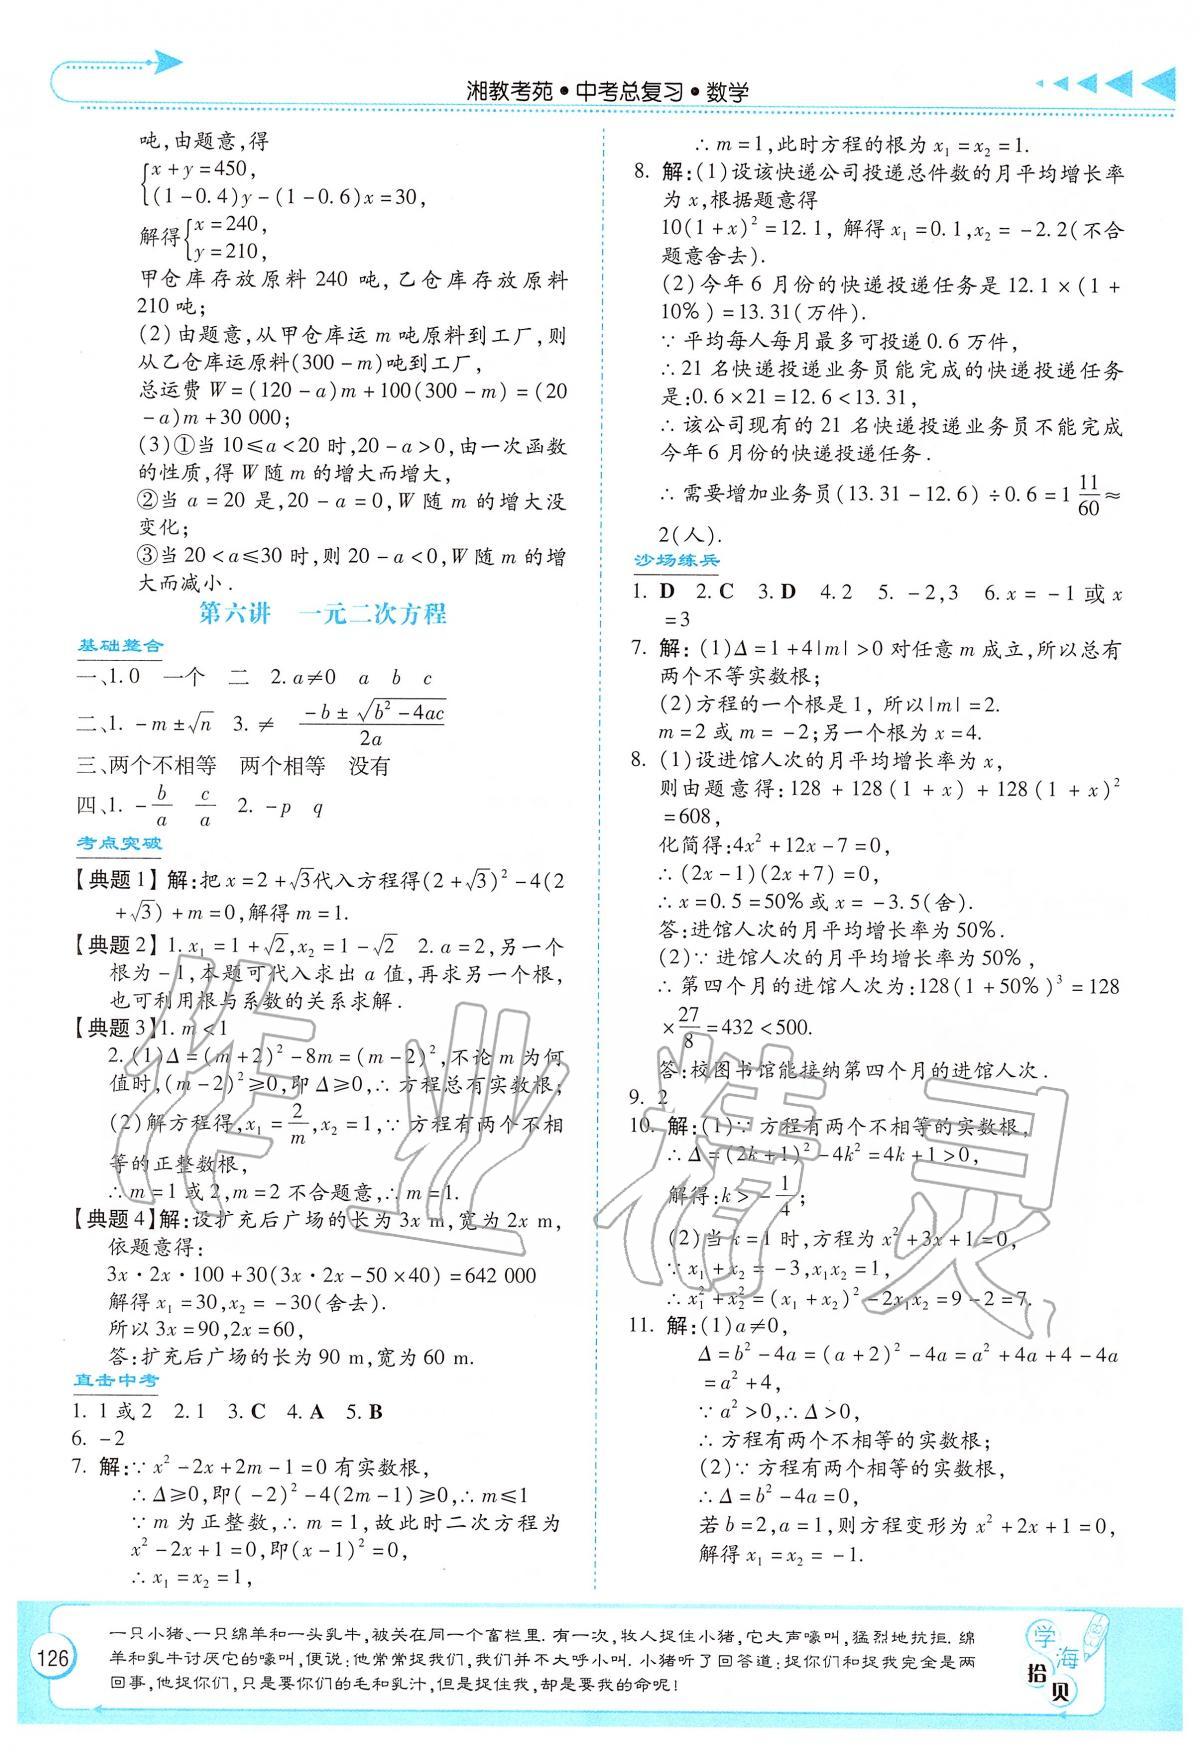 湘教考苑·中考总复习·数学
吨,由题意,得
{x+y=450,
(1-0.4)y-(1-0.6)x=30,
解得{x=240,
y=210,
甲仓库存放原料 240 吨,乙仓库存放原料
210 吨;
(2)由题意,从甲仓库运 m 吨原料到工厂,则
从乙仓库运原料(300-m)吨到工厂,
总运费 W=(120-a)m+100(300-m)=(20
-a)m+30 000;
(3)①当 10≤a<20 时,20-a>0,由一次函数
的性质,得 W 随 m 的增大而增大,
②当 a=20 是,20-a=0,W 随 m 的增大没
变化;
③当 20<a≤30 时,则 20-a<0,W 随 m 的增
大而减小.
第六讲 一元二次方程
基础整合
一、1.0 一个 二 2.a≠0 a b c
二、1. -m±√n 3. ≠ (-b±√(b²-4ac))/2a
三、两个不相等 两个相等 没有
四、1. -b/a c/a 2. -p q
考点突破
【典题1】解:把 x=2+√3代入方程得(2+√3)²-4(2
+√3)+m=0,解得 m=1.
【典题2】1.x₁=1+√2,x₂=1-√2 2.a=2,另一个
根为-1,本题可代入求出 a 值,再求另一个根,
也可利用根与系数的关系求解.
【典题3】1. m<1
2.(1)Δ=(m+2)²-8m=(m-2)²,不论 m 为何
值时,(m-2)²≥0,即 Δ≥0,∴方程总有实数根;
(2)解方程得,x₁=2/m,x₂=1,∵方程有两个不相
等的正整数根,
∴m=1 或 2,m=2 不合题意,∴m=1.
【典题4】解:设扩充后广场的长为 3x m,宽为 2x m,
依题意得:
3x·2x·100+30(3x·2x-50×40)=642 000
解得 x₁=30,x₂=-30(舍去).
所以 3x=90,2x=60,
答:扩充后广场的长为 90 m,宽为 60 m.
直击中考
1. 1 或 2 2.1 3.C 4.A 5.B
6. -2
7. 解:∵x²-2x+2m-1=0 有实数根,
∴Δ≥0,即(-2)²-4(2m-1)≥0,∴m≤1
∵m 为正整数,∴m=1,故此时二次方程为
x²-2x+1=0,即(x-1)²=0,
∴x₁=x₂=1,
∴m=1,此时方程的根为 x₁=x₂=1.
8. 解:(1)设该快递公司投递总件数的月平均增长率
为 x,根据题意得
10(1+x)²=12.1, 解得 x₁=0.1,x₂=-2.2(不合
题意舍去).
(2)今年 6 月份的快递投递任务是 12.1×(1+
10%)=13.31(万件).
∵平均每人每月最多可投递 0.6 万件,
∴21 名快递投递业务员能完成的快递投递任务
是:0.6×21=12.6<13.31,
∴该公司现有的 21 名快递投递业务员不能完成
今年 6 月份的快递投递任务.
∴需要增加业务员(13.31-12.6)÷0.6=1 11/60≈
2(人).
沙场练兵
1. D 2.C 3.D 4.2 5. -2,3 6.x=-1 或 x
=3
7. 解:(1)Δ=1+4|m|>0 对任意 m 成立,所以总有
两个不等实数根;
(2)方程的一个根是 1, 所以|m|=2.
m=2 或 m=-2;另一个根为 x=4.
8. (1)设进馆人次的月平均增长率为 x,
则由题意得:128+128(1+x)+128(1+x)²
=608,
化简得:4x²+12x-7=0,
∴(2x-1)(2x+7)=0,
∴x=0.5=50%或 x=-3.5(舍).
答:进馆人次的月平均增长率为 50%.
(2)∵进馆人次的月平均增长率为 50%,
∴第四个月的进馆人次为:128(1+50%)³=128
×27/8=432<500.
答:校图书馆能接纳第四个月的进馆人次.
9. 2
10. 解:(1)∵方程有两个不相等的实数根,
∴Δ=(2k+1)²-4k²=4k+1>0,
解得:k>-1/4;
(2)当 k=1 时,方程为 x²+3x+1=0,
∵x₁+x₂=-3,x₁x₂=1,
∴x₁²+x₂²=(x₁+x₂)²-2x₁x₂=9-2=7.
11. 解:(1)a≠0,
Δ=b²-4a=(a+2)²-4a=a²+4a+4-4a
=a²+4,
∵a²>0,∴Δ>0,
∴方程有两个不相等的实数根;
(2)∵方程有两个相等的实数根,
∴Δ=b²-4a=0,
若 b=2,a=1,则方程变形为 x²+2x+1=0,
解得 x₁=x₂=-1.
作业精灵
126
一只小猪、一只绵羊和一头乳牛,被关在同一个畜栏里.有一次,牧人捉住小猪,它大声嚎叫,猛烈地抗拒.绵
羊和乳牛讨厌它的嚎叫,便说:他常常捉我们,我们并不大呼小叫.小猪听了回答道:捉你们和捉我完全是两
回事,他捉你们,只是要你们的毛和乳汁,但是捉住我,却是要我的命呢!
学海
拾贝